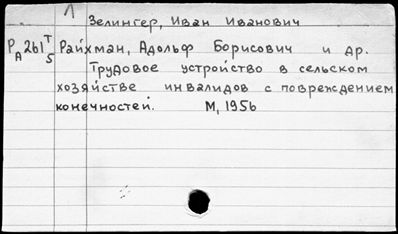 1
Зелингер, Иван Иванович
РА261Т/5 Райхман, Адольф Борисович и др.
Трудовое устройство в сельском
хозяйстве инвалидов с повреждением
конечностей. М, 1956